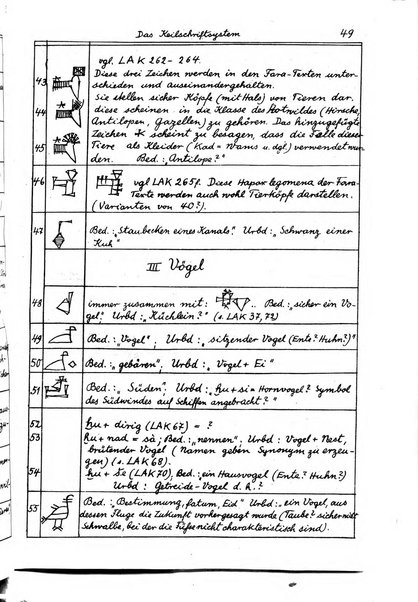 Das Keilschriftsystem 49
vgl. LAK 262–264.
43 Diese drei Zeichen werden in den Fara-Texten unter-
schieden und auseinandergehalten.
Sie stellen sicher Köpfe (mit Hals) von Tieren dar,
44 diese scheinen in die Klasse des Rotwildes (Hirsche,
Antilopen, Gazellen) zu gehören. Das hinzugefügte
Zeichen * scheint zu besagen, dass die Felle dieser
45 Tiere als Kleider (Kad = u. dgl) verwendet wur
den. Bed.: „Antilope?“
46 vgl LAK 265f. Diese Hapax legomena der Fara-
Texte werden auch wohl Tierköpfe darstellen.
(Varianten von 40?).
47 Bed.: „Staubecken eines Kanals“. Urbd: „Schwanz einer
Kuh“
III Vögel
48 immer zusammen mit: .. Bed.: „sicher ein Vo-
gel“, Urbd: „Küchlein?“ (s. LAK 37,72)
49 Bed.: „Vogel“, Urbd: „sitzender Vogel (Ente? Huhn?)“
50 Bed.: „gebären“, Urbd: „Vogel + Ei“
51 Bed.: „Süden“, Urbd: „ḫu + si = Hornvogel? Symbol
des Südwindes auf Schiffen angebracht?“
52 ḫu + dirig (LAK 67) = ?
53 ḫu + nad = sà; Bed.: „nennen“, Urbd: Vogel + Nest,
brütender Vogel (Namen geben Synonym zu erzeu-
gen) (s. LAK 68).
54 ḫu + še (LAK 70), Bed.: ein Hausvogel (Ente? Huhn?)
Urbd: Getreide-Vogel d. h.?
55 Bed.: „Bestimmung, fatum, Eid“ Urbd: „ein Vogel, aus
dessen Fluge die Zukunft vorhergesagt wurde (Taube? sicher nicht
Schwalbe, bei der die Füße nicht charakteristisch sind).